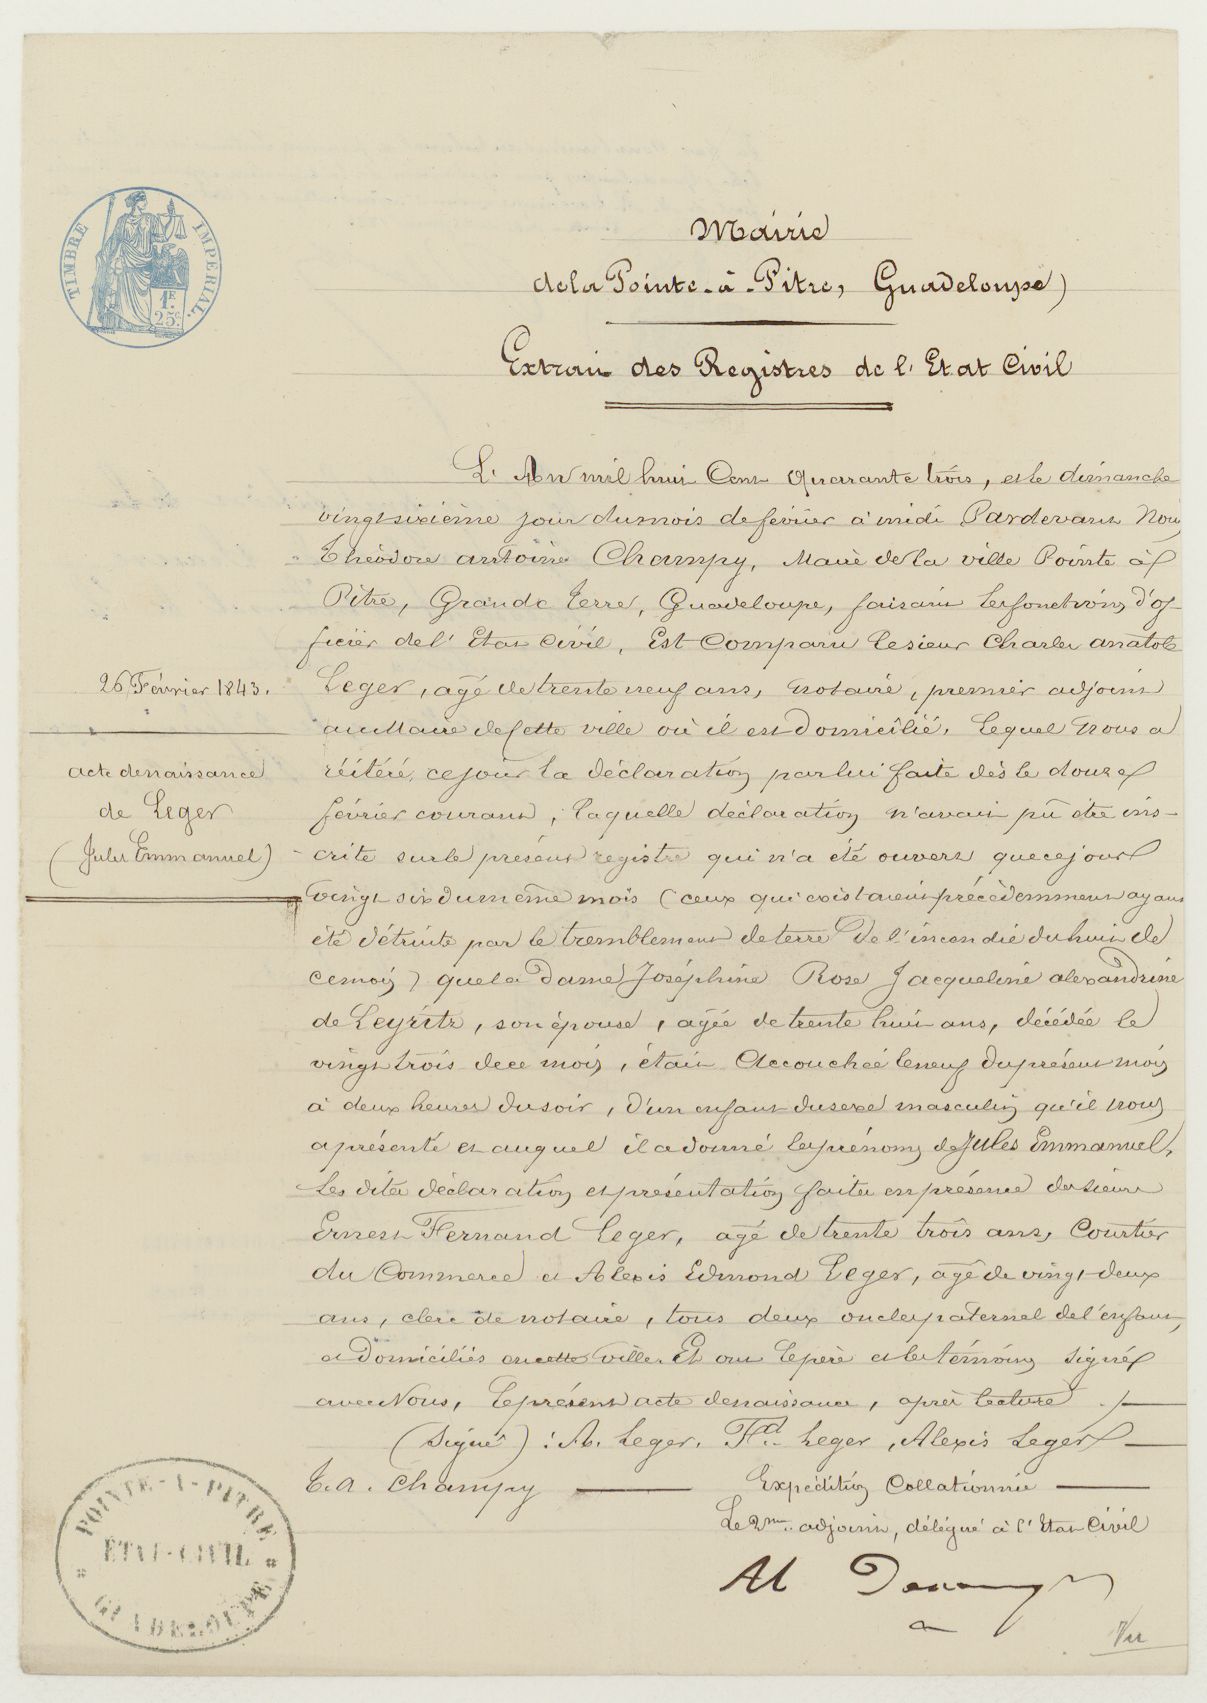 TIMBRE IMPERIAL
1F.
25c.
Mairie
de la Pointe-à-Pitre, Guadeloupe)
Extrait des Registres de l'Etat Civil
26 Février 1843.
acte de naissance
de Leger
(Jules Emmanuel)
L'An mil huit Cent Quarante trois, et le dimanche
vingt sixième jour du mois de février à midi Pardevant Nous
Théodore antoine Champy, Maire de la ville Pointe à
Pitre, Grande Terre, Guadeloupe, faisant les fonctions d'of-
ficier de l'Etat Civil, Est Comparu le sieur Charles anatole
Leger, agé de trente neuf ans, notaire, premier adjoint
au Maire de Cette ville où il est Domicilié. Lequel nous a
réitéré, ce jour la déclaration par lui faite dès le douze
février courant, laquelle déclaration n'avait pû être ins-
crite sur le présent registre qui n'a été ouvert que ce jour
vingt six du même mois (ceux qui existaient précédemment ayant
été détruits par le tremblement de terre de l'incendie du huit de
ce mois) que la Dame Joséphine Rose Jacqueline alexandrine
de Leyritz, son épouse, agée de trente huit ans, décédée le
vingt trois de ce mois, était Accouchée le neuf du présent mois
à deux heures du soir, d'un enfant du sexe masculin qu'il nous
a présenté et auquel il a donné les prénoms de Jules Emmanuel,
Les dites déclaration et présentation faites en présence des sieurs
Ernest Fernand Leger, agé de trente trois ans, Courtier
du Commerce et Alexis Edmond Leger, agé de vingt-deux
ans, clerc de notaire, tous deux oncles paternel de l'enfant,
et Domiciliés en cette ville. Et ont le père et les témoins signé
avec Nous, le présent acte de naissance, après lecture
(Signé) : A. Leger. Fd. Leger, Alexis Leger
T. A. Champy Expédition Collationnée
Le 2me adjoint, délégué à l'Etat Civil
POINTE-A-PITRE
ETAT-CIVIL
GUADELOUPE
Vu